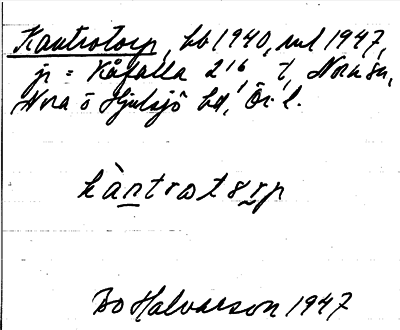 Kantrotorp, hb 1940, nul 1947,
jr = Kåfalla 2¹⁶, Nora sn,
Nora o Hjulsjö bd, Ör. l.
kàntrotɷrp
Bo Halvarson 1947